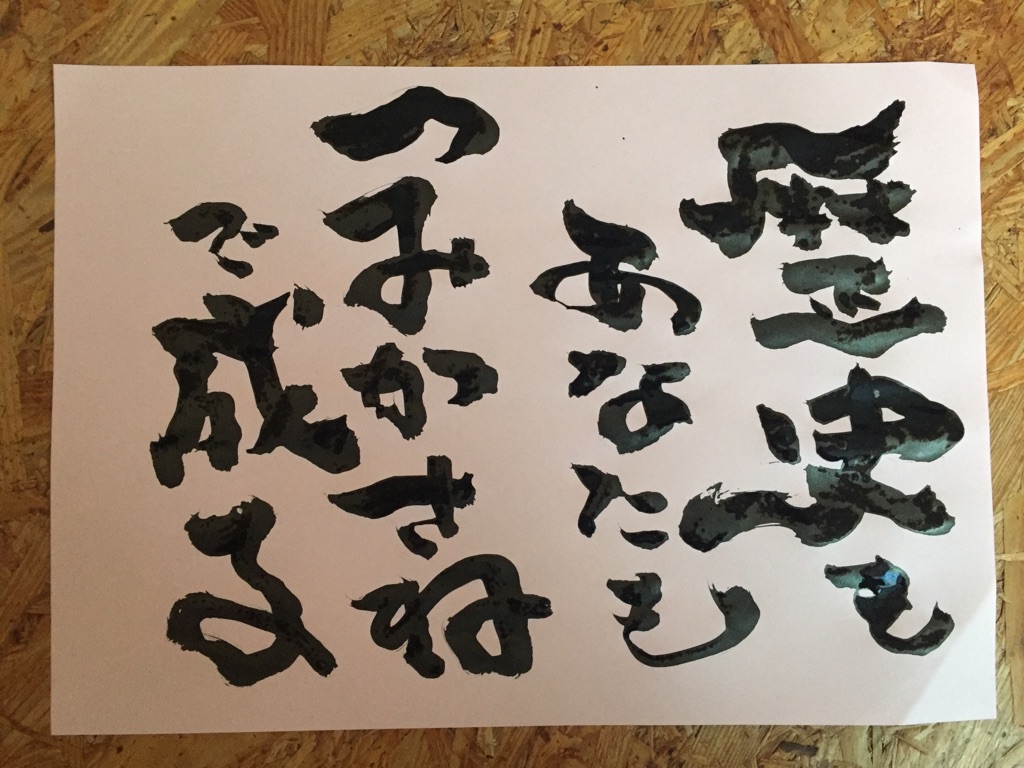 歴史も
あなたも
つみかさね
で成